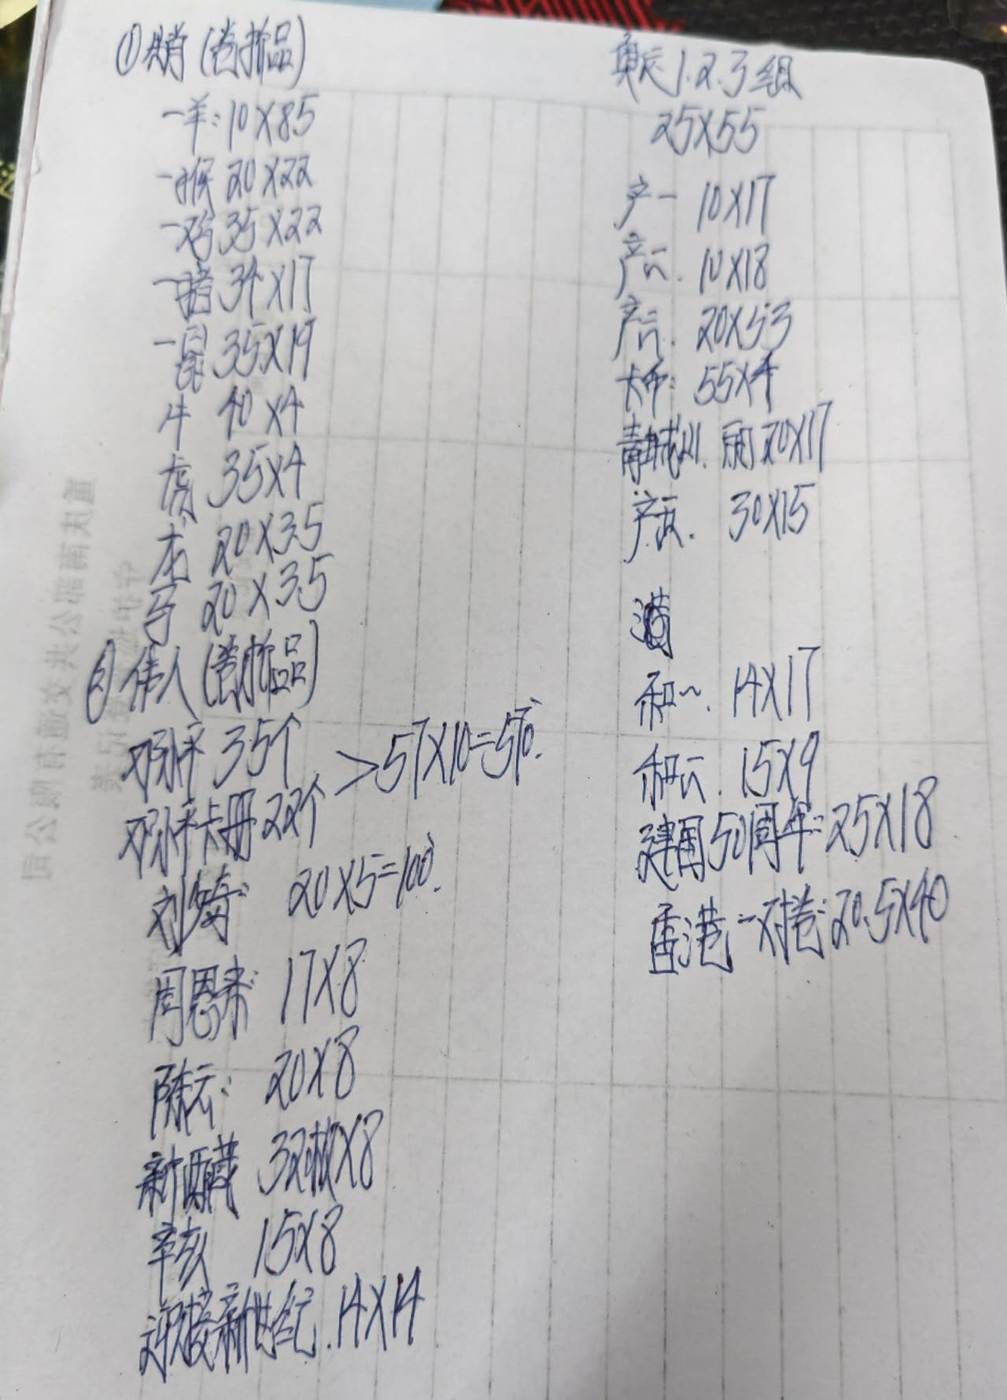 ①生肖(卷拆品)
一羊:10X85
一猴 20X22
一鸡 35X22
一猪 34X17
一鼠 35X19
牛 40X4
虎 35X4
本 20X3.5
马 20X3.5
②伟人(卷拆品)
邓小平 35个
邓小平卡册 22个
>57X10=570.
刘少奇 20X5=100.
周恩来 17X8
陈云: 20X8
新西藏 32枚X8
辛亥 15X8
迎接新世纪. 14X14
奥运1.2.3组
25X55
产一 10X17
产二. 10X18
产三. 20X53
大币: 55X4
青城山. 20X17
产五. 30X15
和一. 14X17
和二. 15X9
建国50周年:25X18
香港一对卷:20.5X40